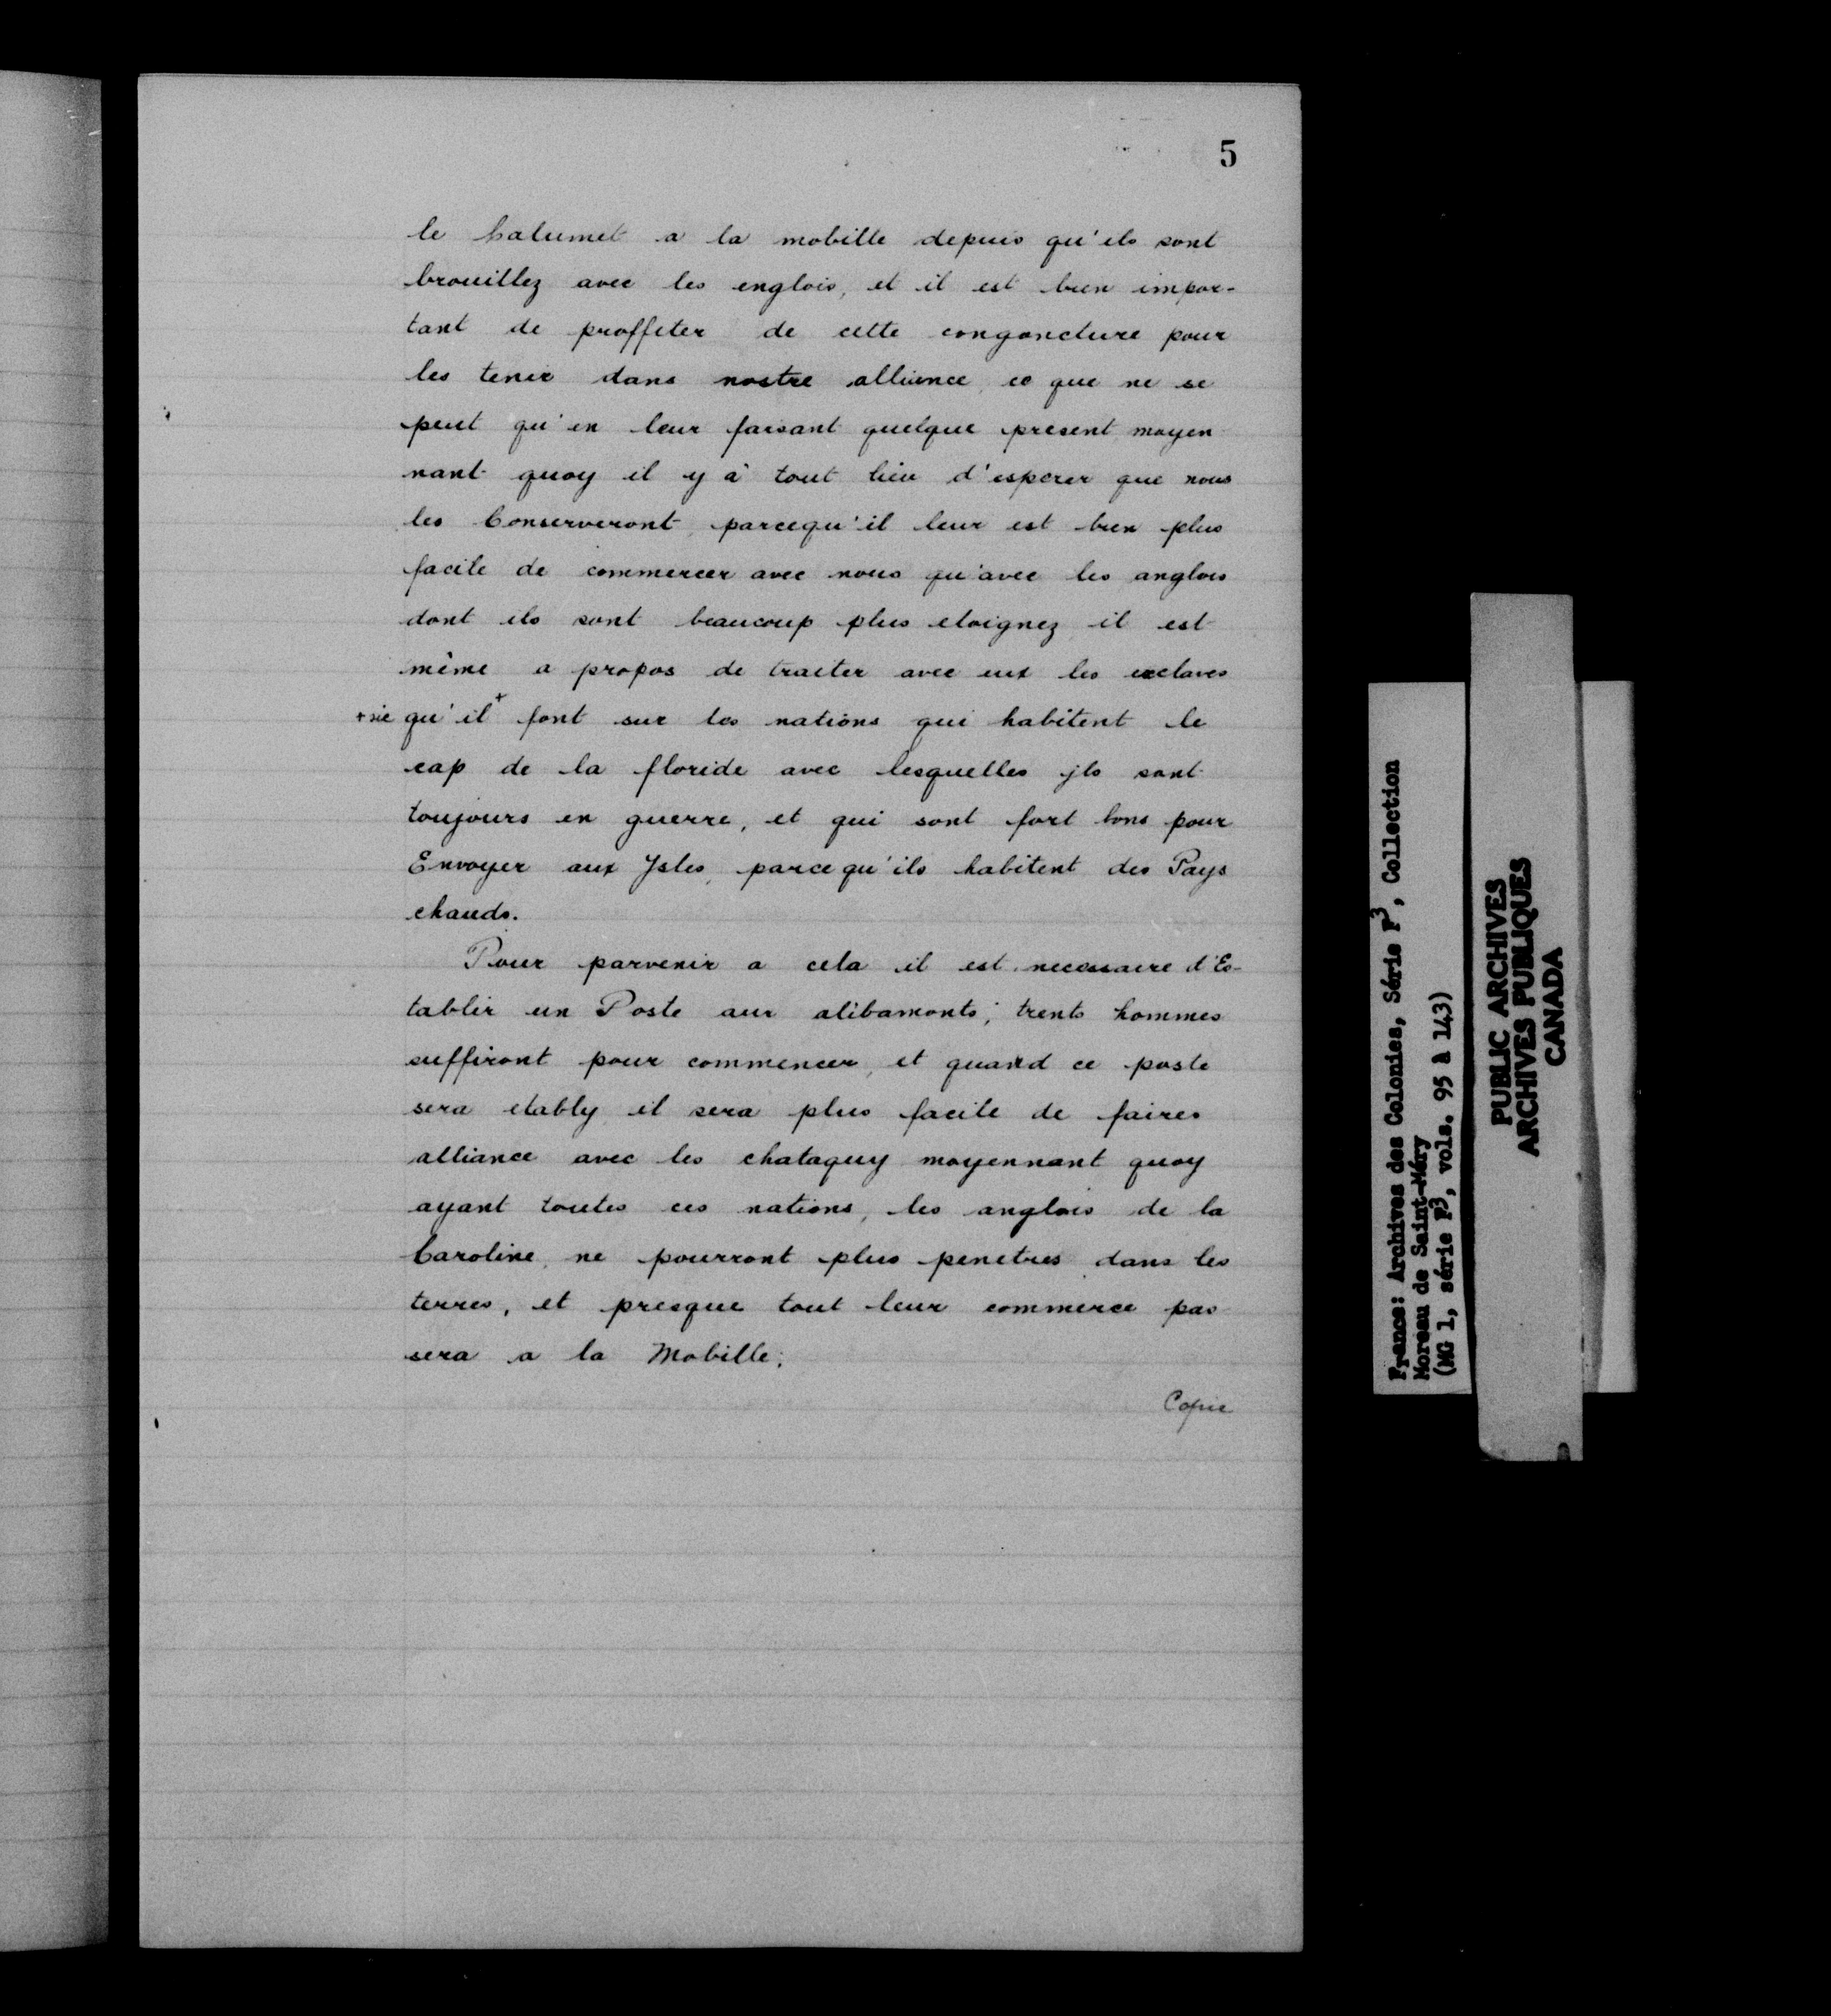 5
le Calumet a la mobille depuis qu'ils sont
brouillez avec les englois, et il est bien impor-
tant de proffiter de cette congoncture pour
les tenir dans nostre alliance, ce que ne se
peut qu'en leur faisant quelque present, moyen
nant quoy il y à tout lieu d'esperer que nous
les Conserveront, parcequ'il leur est bien plus
facile de commercer avec nous qu'avec les anglois
dont ils sont beaucoup plus eloignez, il est
même a propos de traiter avec eux les esclaves
+ sic qu'il + font sur les nations qui habitent le
cap de la floride avec lesquelles jls sont
toujours en guerre, et qui sont fort bons pour
Envoyer aux Jsles, parce qu'ils habitent des Pays
chauds.
Pour parvenir a cela il est necessaire d'Es-
tablir un Poste aux alibamonts; trente hommes
suffiront pour commencer, et quand ce poste
sera etably, il sera plus facile de faires
alliance avec les chataquy moyennant quoy
ayant toutes ces nations, les anglois de la
Caroline, ne pourront plus penetres dans les
terres, et presque tout leur commerce pas
sera a la Mobille;
Copie
France: Archives des Colonies, Série F3, Collection
Moreau de Saint-Méry
(MG 1, série F3, vols. 95 à 143)
PUBLIC ARCHIVES
ARCHIVES PUBLIQUES
CANADA